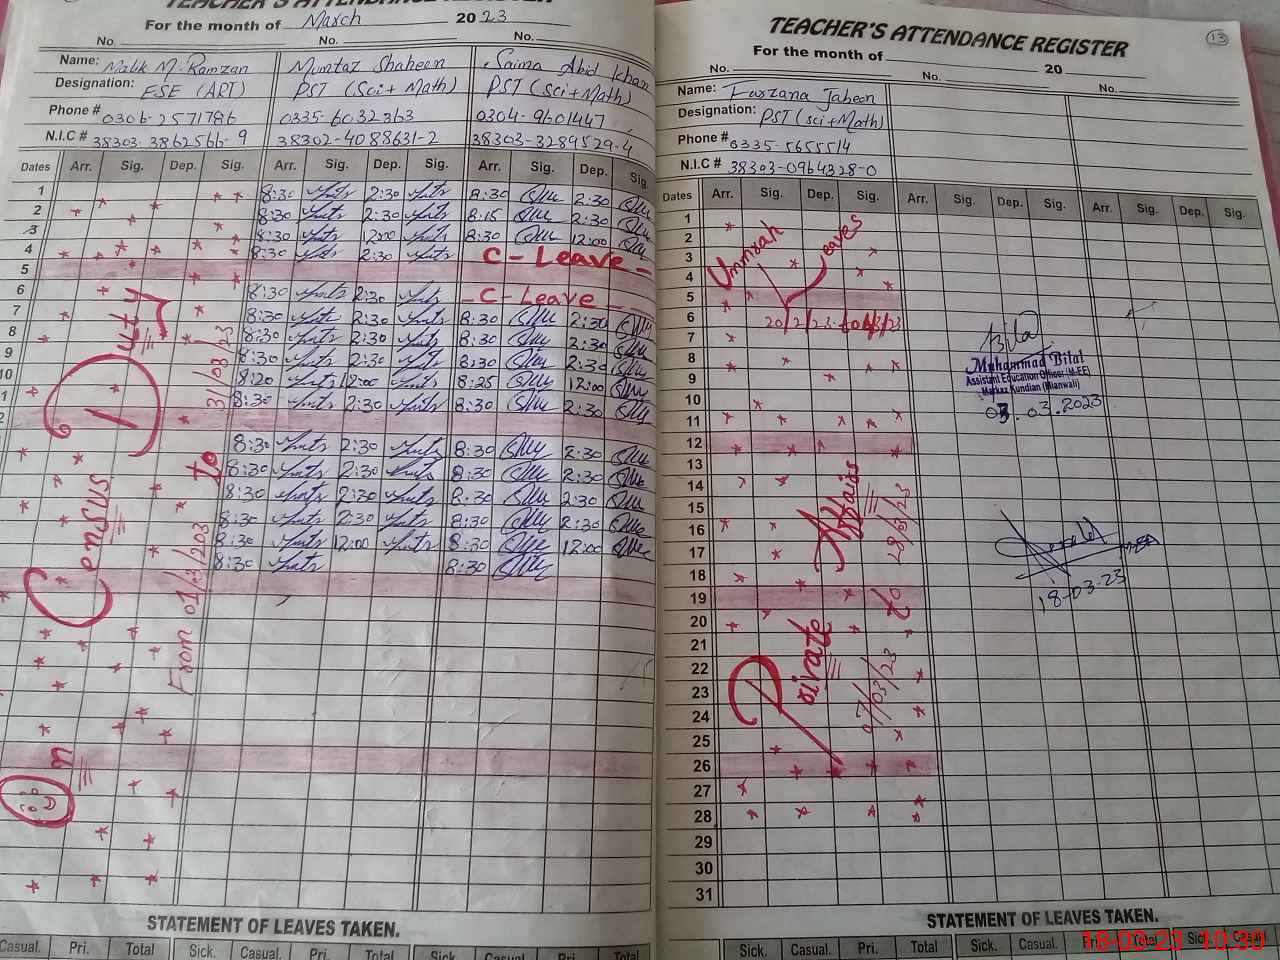 TEACHER'S ATTENDANCE REGISTER
For the month of March 2023
No. No. No.
Name: Malik M. Ramzan Mumtaz Shaheen Saima Abid Khan
Designation: ESE (ART) PST (Sci+Math) PST (Sci+Math)
Phone # 0306-2571786 0335-6032363 0304-9601447
N.I.C # 38303-3862566-9 38302-4088631-2 38303-3289529-4
Dates Arr. Sig. Dep. Sig. Arr. Sig. Dep. Sig. Arr. Sig. Dep. Sig.
1 8:30 2:30 8:30 2:30
2 8:30 2:30 8:15 2:30
3 8:30 12:00 8:30 12:00
4 8:30 2:30 C-Leave-
5
6 8:30 2:30 -C-Leave-
7 8:30 2:30 8:30 2:30
8 8:30 2:30 8:30 2:30
9 8:30 2:30 8:30 2:30
10 8:20 12:00 8:25 12:00
8:30 2:30 8:30 2:30
8:30 2:30 8:30 2:30
8:30 2:30 8:30 2:30
8:30 2:30 8:30 2:30
8:30 2:30 8:30 2:30
8:30 12:00 8:30 12:00
8:30 8:30
On Consus Duty
From 01/03/203 to 31/03/23
STATEMENT OF LEAVES TAKEN.
Casual. Pri. Total Sick. Casual. Pri. Total Sick. Casual. Pri. Total
TEACHER'S ATTENDANCE REGISTER
13
For the month of 20
No. No. No.
Name: Farzana Jabeen
Designation: PST (sci+Math)
Phone # 0335-5655514
N.I.C # 38303-0964328-0
Dates Arr. Sig. Dep. Sig. Arr. Sig. Dep. Sig. Arr. Sig. Dep. Sig.
1
2
3
4
5
6
7
8
9
10
11
12
13
14
15
16
17
18
19
20
21
22
23
24
25
26
27
28
29
30
31
Ummrah Leaves
Private Affairs
07/03/23 to 28/03/23
Bilal
Muhammad Bilal
Assistant Education Officer (M-EE)
Markaz Kundian (Mianwali)
03.03.2023
18-03-23
STATEMENT OF LEAVES TAKEN.
Sick. Casual. Pri. Total Sick. Casual. Pri. Total Sick. Casual.
18-03-23 10:30